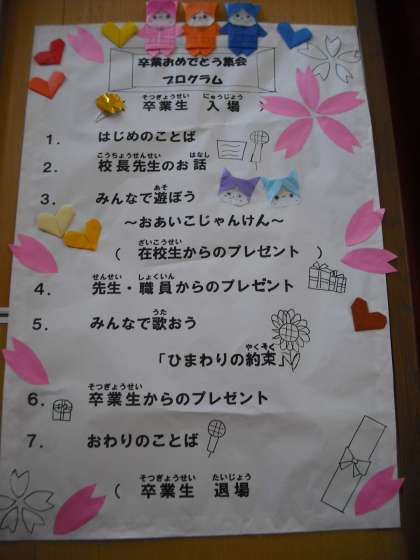 卒業おめでとう集会
プログラム
そつぎょうせい にゅうじょう
( 卒業生 入場 )
1. はじめのことば
こうちょうせんせい はなし
2. 校長先生のお話
あそ
3. みんなで遊ぼう
～おあいこじゃんけん～
ざいこうせい
( 在校生からのプレゼント )
せんせい しょくいん
4. 先生・職員からのプレゼント
うた
5. みんなで歌おう
やくそく
「ひまわりの約束」
そつぎょうせい
6. 卒業生からのプレゼント
7. おわりのことば
そつぎょうせい たいじょう
( 卒業生 退場